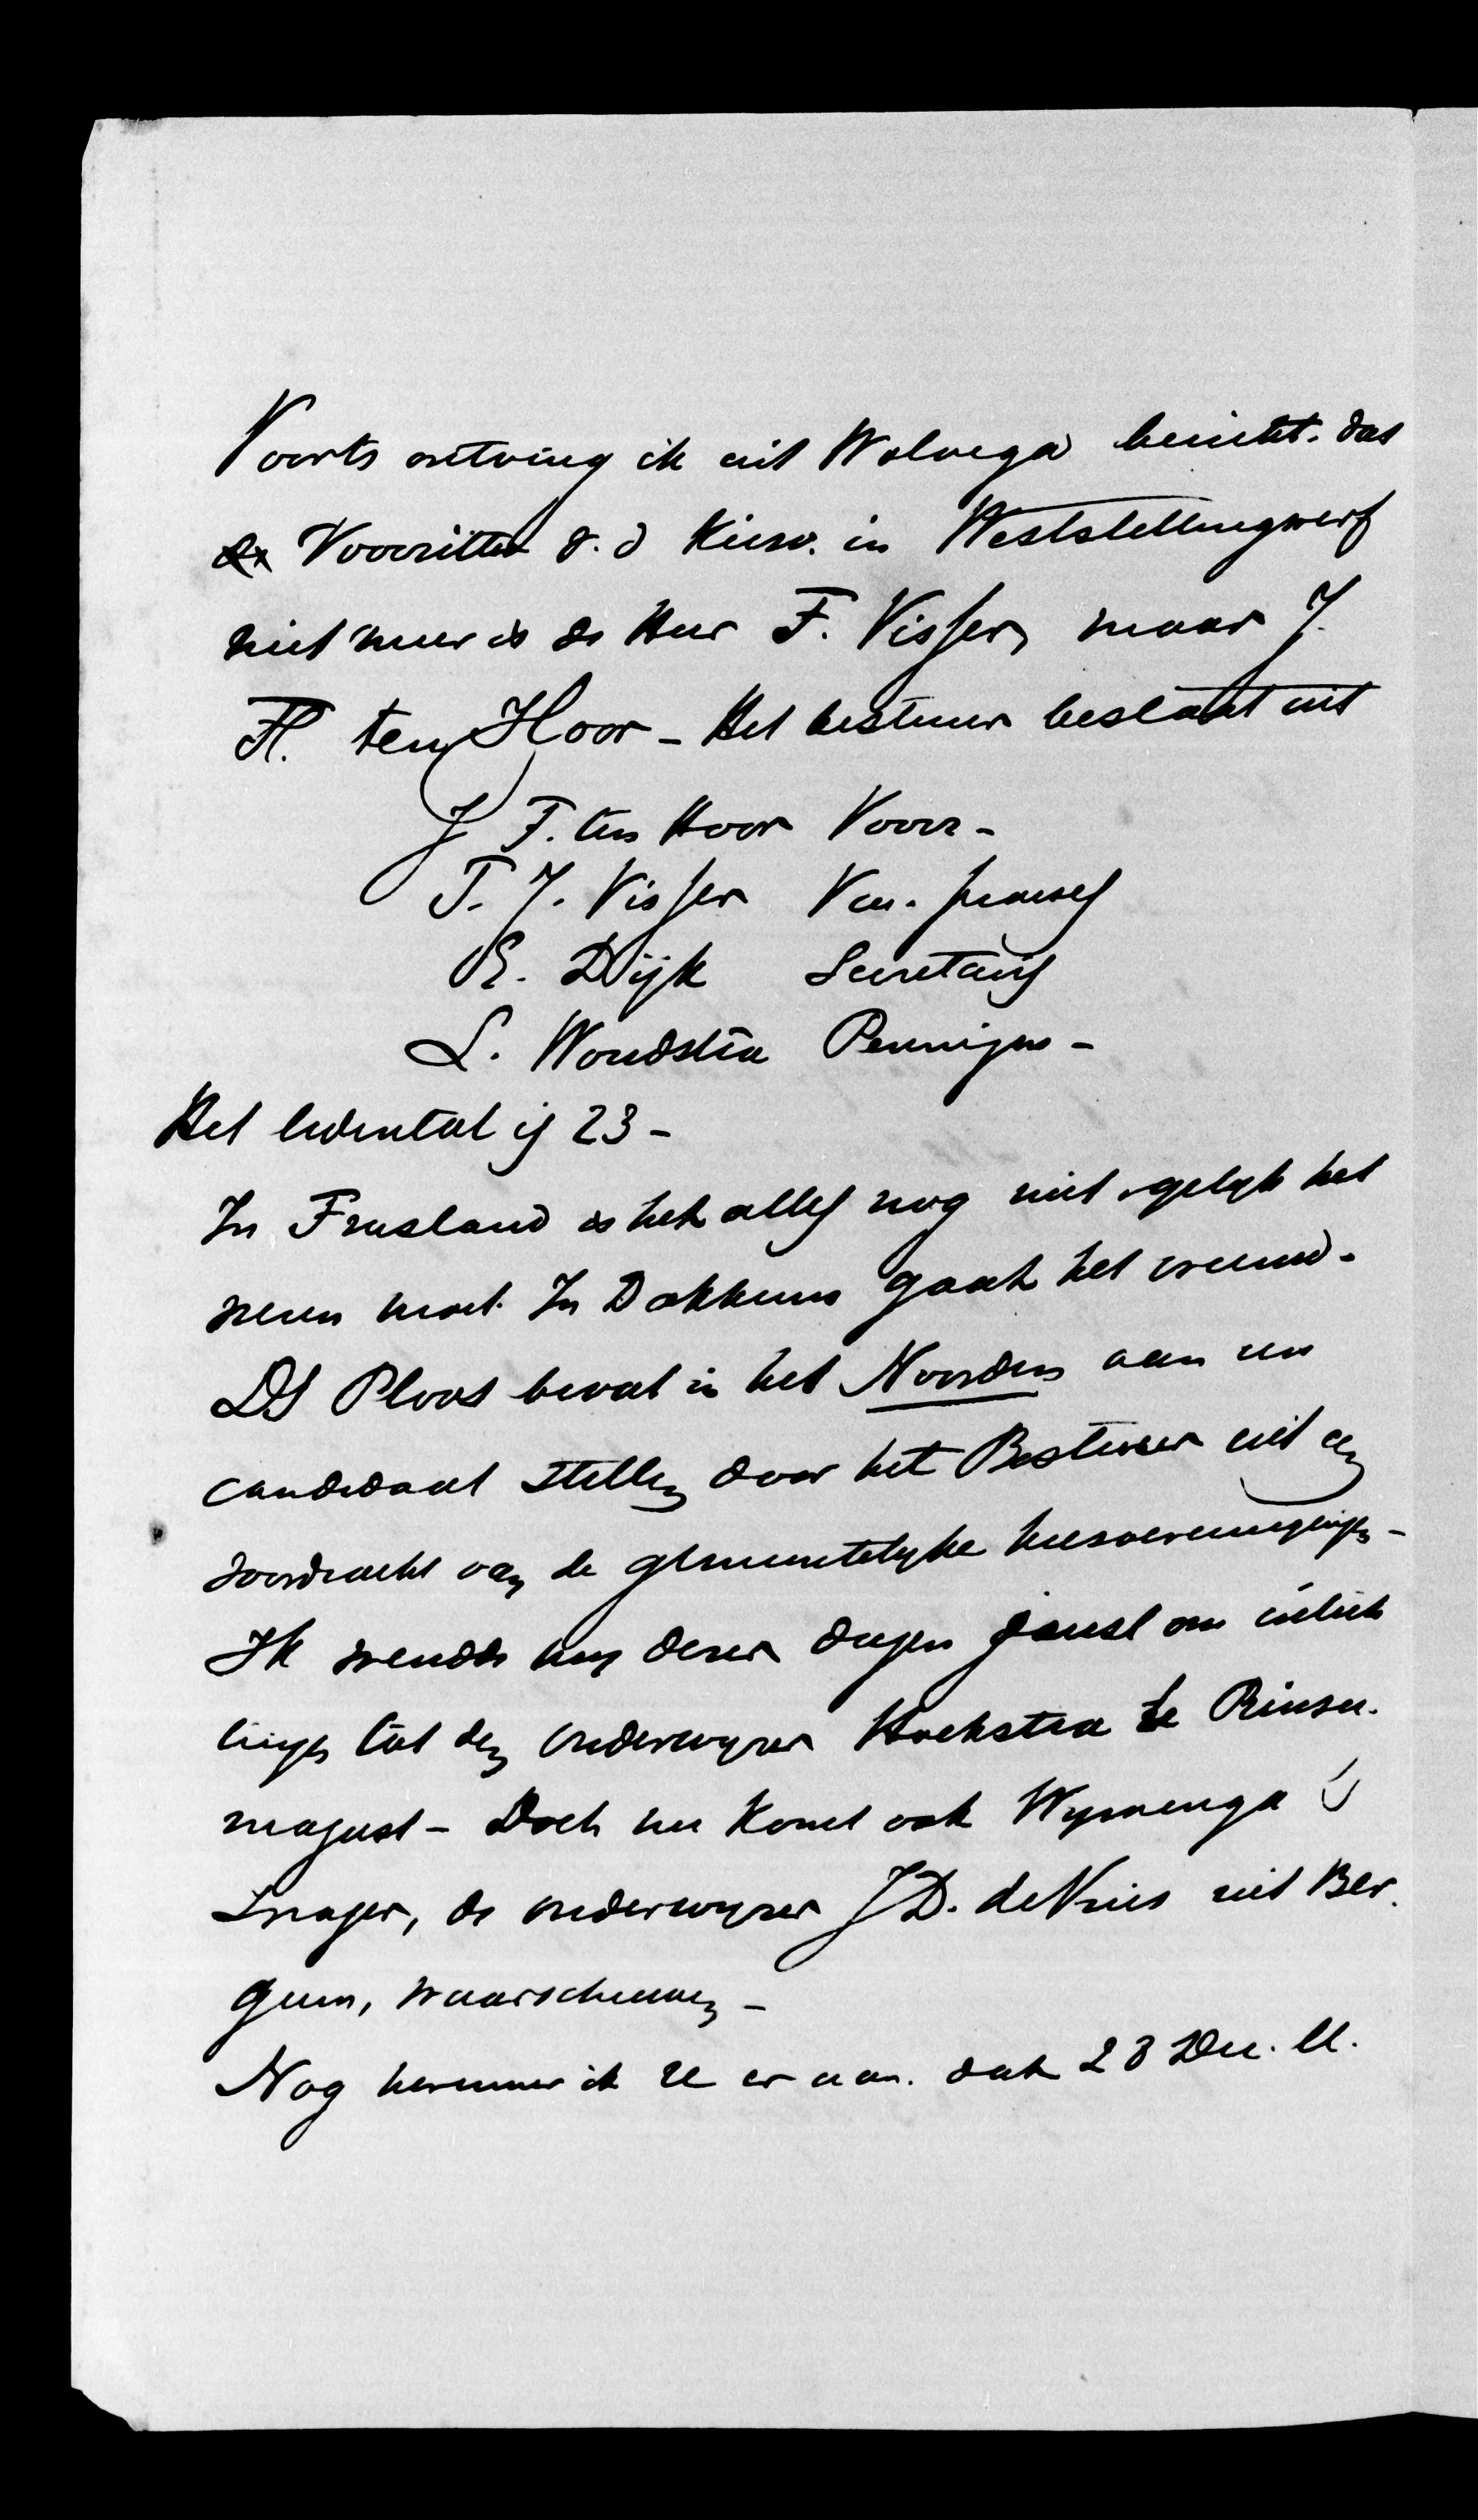 Voorts ontving ik uit Wolvega bericht. dat
de Voorzitter v. d Kiesv. in Weststellingwerf
niet meer is de Heer F. Visser, maar J.
H. ten Hoor - Het bestuur bestaat uit
J F. ten Hoor Voorz -
F. J. Visser Vice. praeses
E. Dijk Secretaris
L. Woudstra Penningm -
Het ledental is 23 -
In Friesland is het alles nog niet gelijk het
wezen moet. In Dokkum gaat het vreemd -
Ds Ploos beval in het Noorden aan een
candidaat stellen door het Bestuur uit een
voordracht van de gemeentelyke kiesvereenigingen -
Ik wendde my dezer dagen juist om inlich
tingen tot den onderwyzer Hoekstra te Rinsu.
mageest - Doch nu komt ook Wymenga's
Zwager, de onderwyzer J D. de Vries uit Ber.
gum, waarschuwen -
Nog herinner ik U er aan. dat 28 Dec. ll.